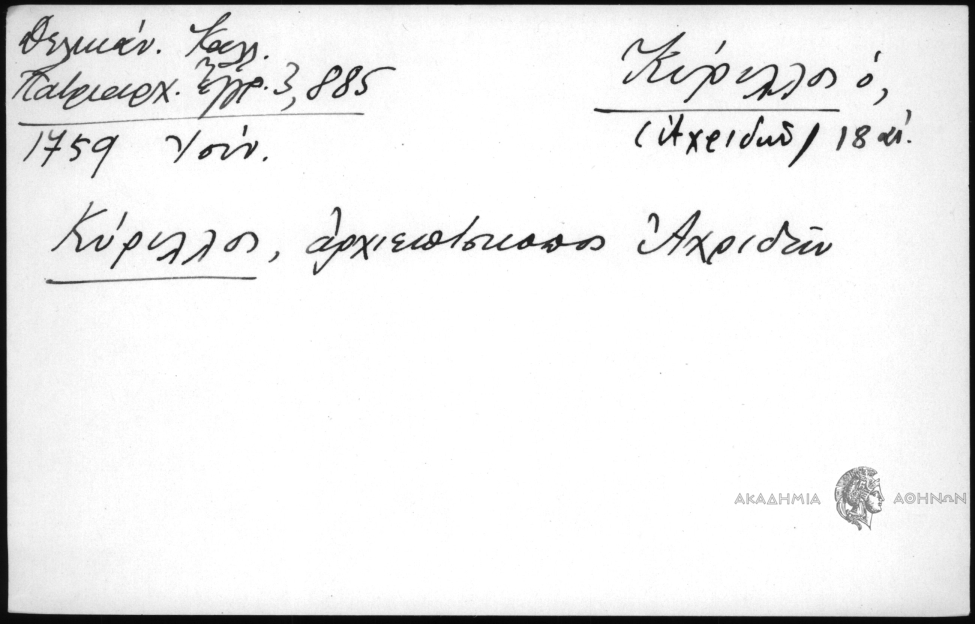 Δελικάν. Καλλ.
Πατριαρχ. Ἔγγρ. 3, 885
1759 Ἰούν.
Κύριλλος ὁ,
(Ἀχριδῶν) 18 αἰ.
Κύριλλος, ἀρχιεπίσκοπος Ἀχριδῶν
ΑΚΑΔΗΜΙΑ ΑΘΗΝΩΝ